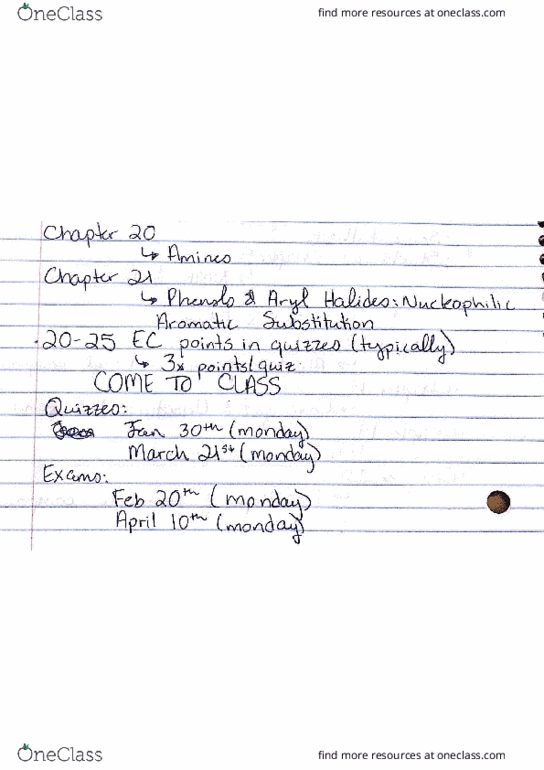 OneClass
find more resources at oneclass.com
Chapter 20
↳ Amines
Chapter 21
↳ Phenols & Aryl Halides: Nucleophilic
Aromatic Substitution
·20-25 EC points in quizzes (typically)
↳ 3x points/quiz.
COME TO CLASS
Quizzes:
Jan 30th (monday)
March 21st (monday)
Exams:
Feb 20th (monday)
April 10th (monday)
OneClass
find more resources at oneclass.com